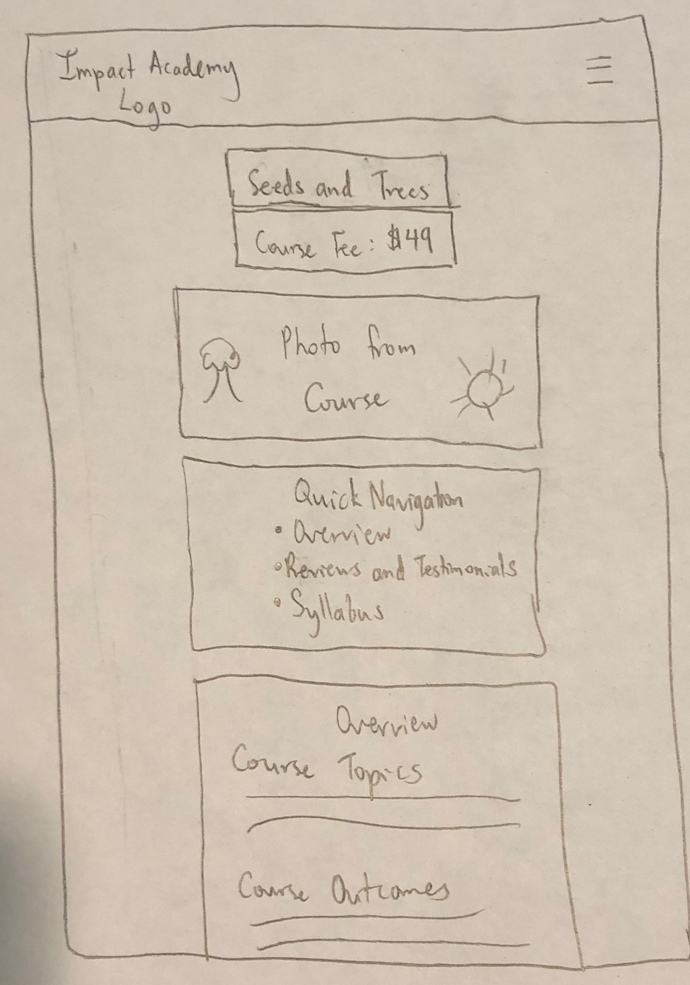 Impact Academy
Logo
Seeds and Trees
Course Fee: $49
Photo from
Course
Quick Navigation
• Overview
• Reviews and Testimonials
• Syllabus
Overview
Course Topics
Course Outcomes